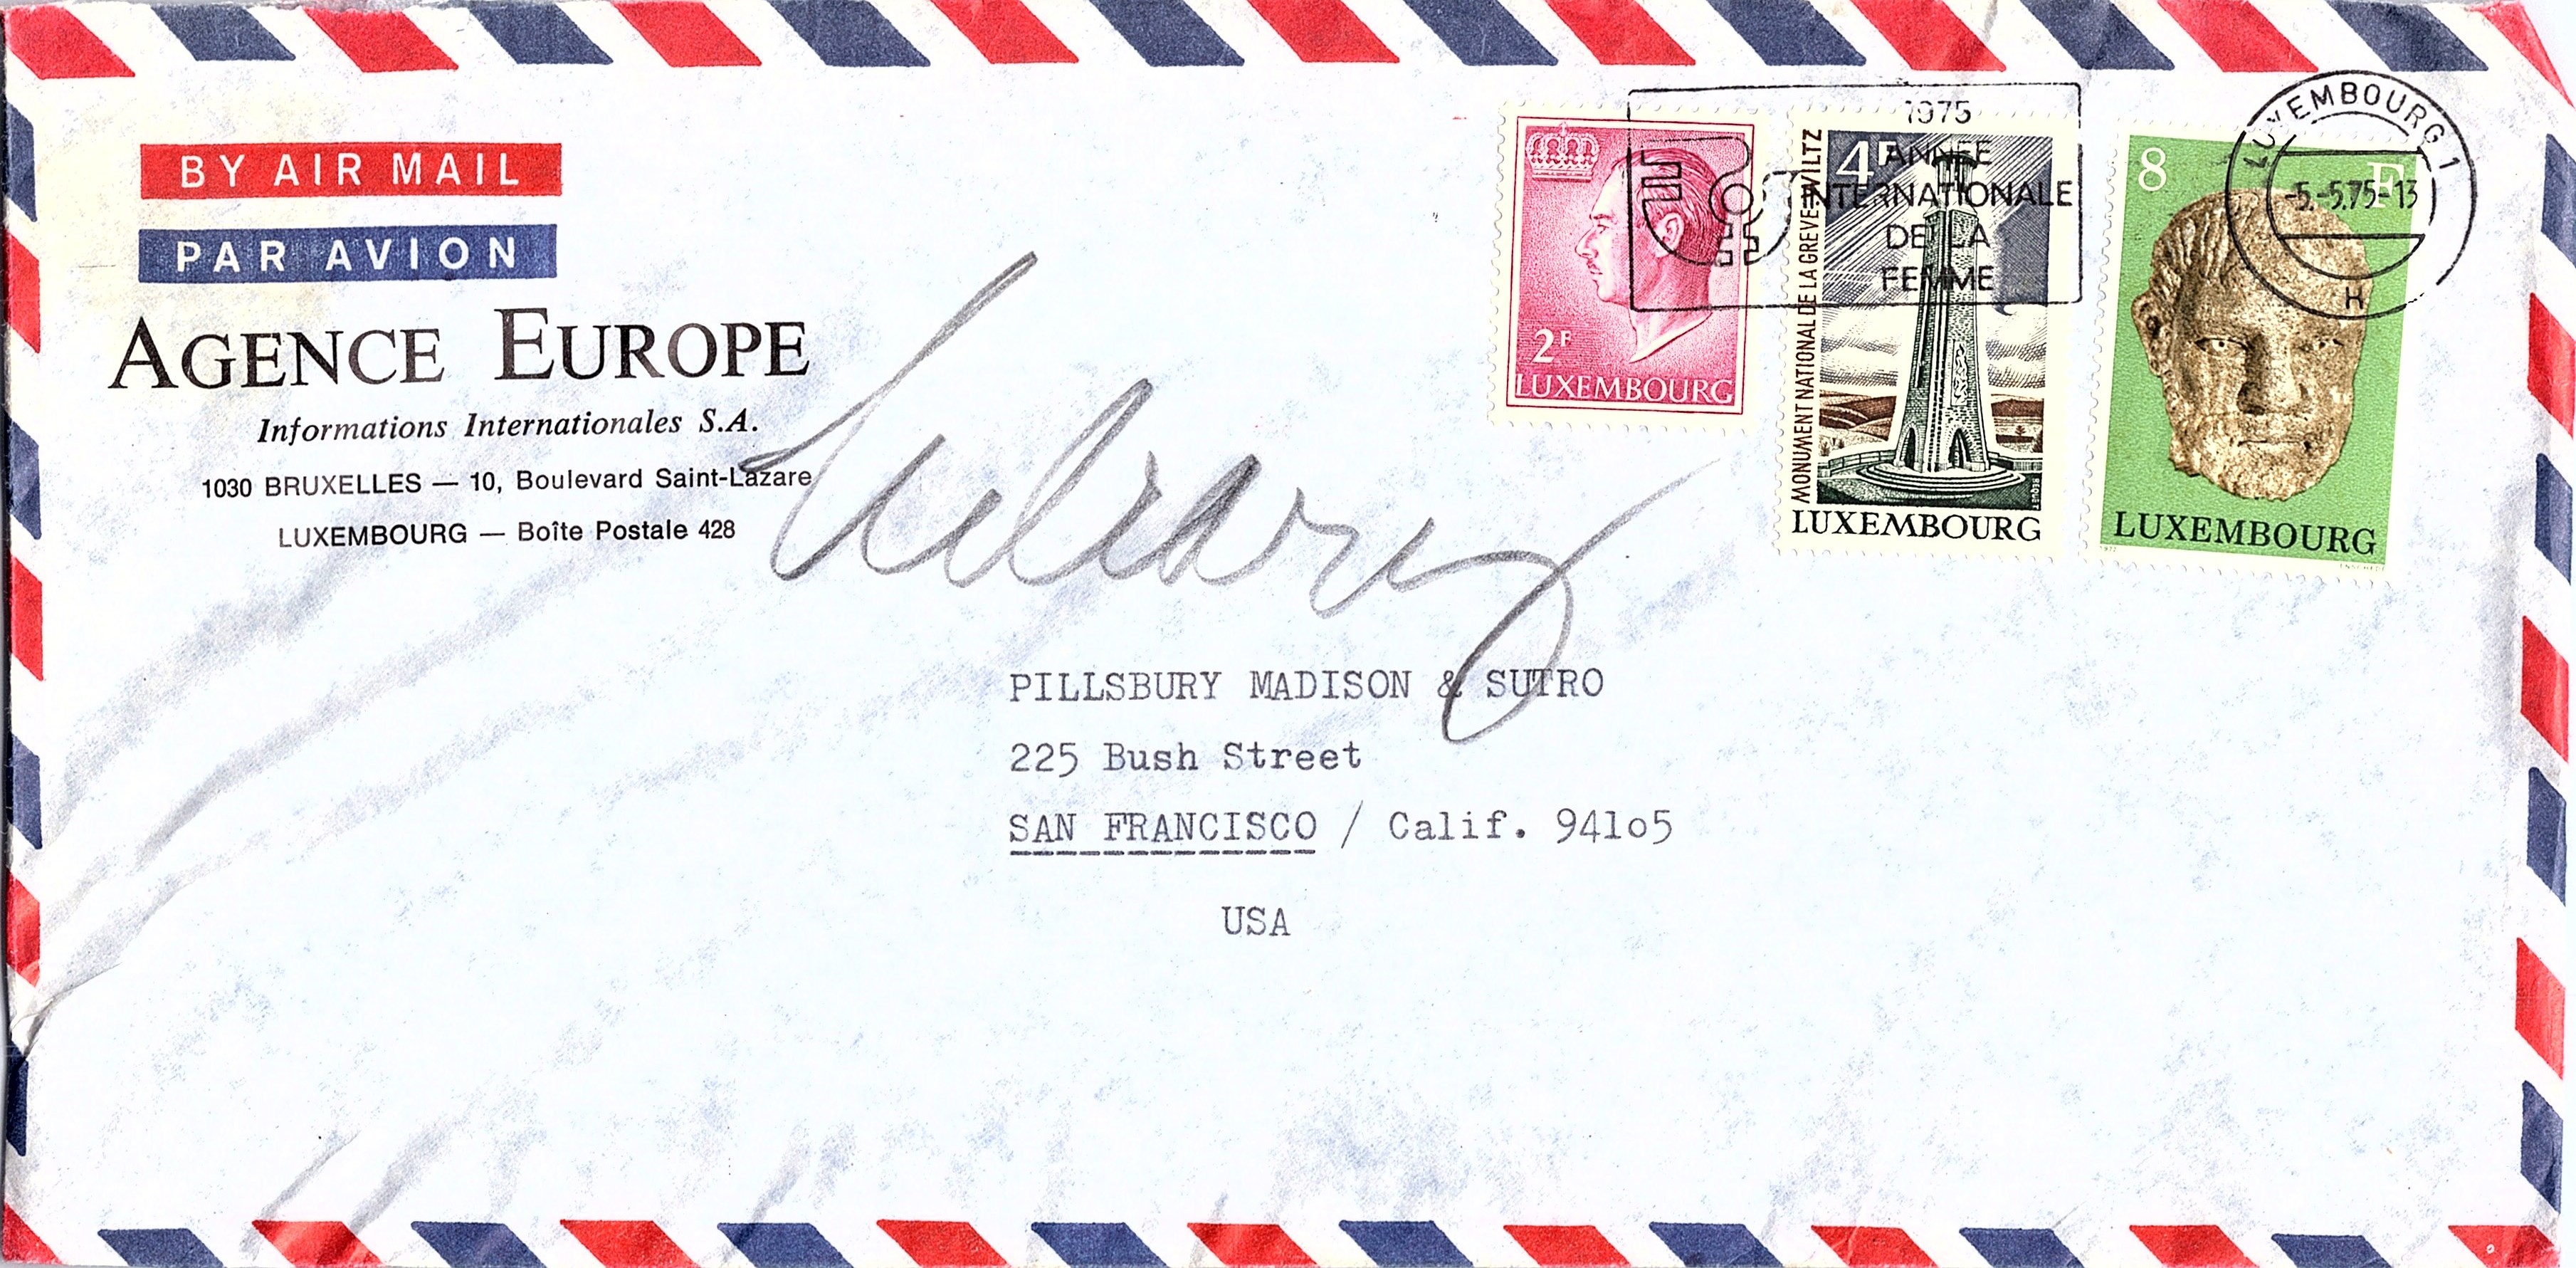 BY AIR MAIL
PAR AVION
AGENCE EUROPE
Informations Internationales S.A.
1030 BRUXELLES — 10, Boulevard Saint-Lazare
LUXEMBOURG — Boîte Postale 428
Library
2F
LUXEMBOURG
4F
MONUMENT NATIONAL DE LA GREVE WILTZ
LUXEMBOURG
8 F
LUXEMBOURG
1975
ANNÉE
INTERNATIONALE
DE LA
FEMME
LUXEMBOURG 1
-5.-5.75-13
H
PILLSBURY MADISON & SUTRO
225 Bush Street
SAN FRANCISCO / Calif. 94lo5
USA